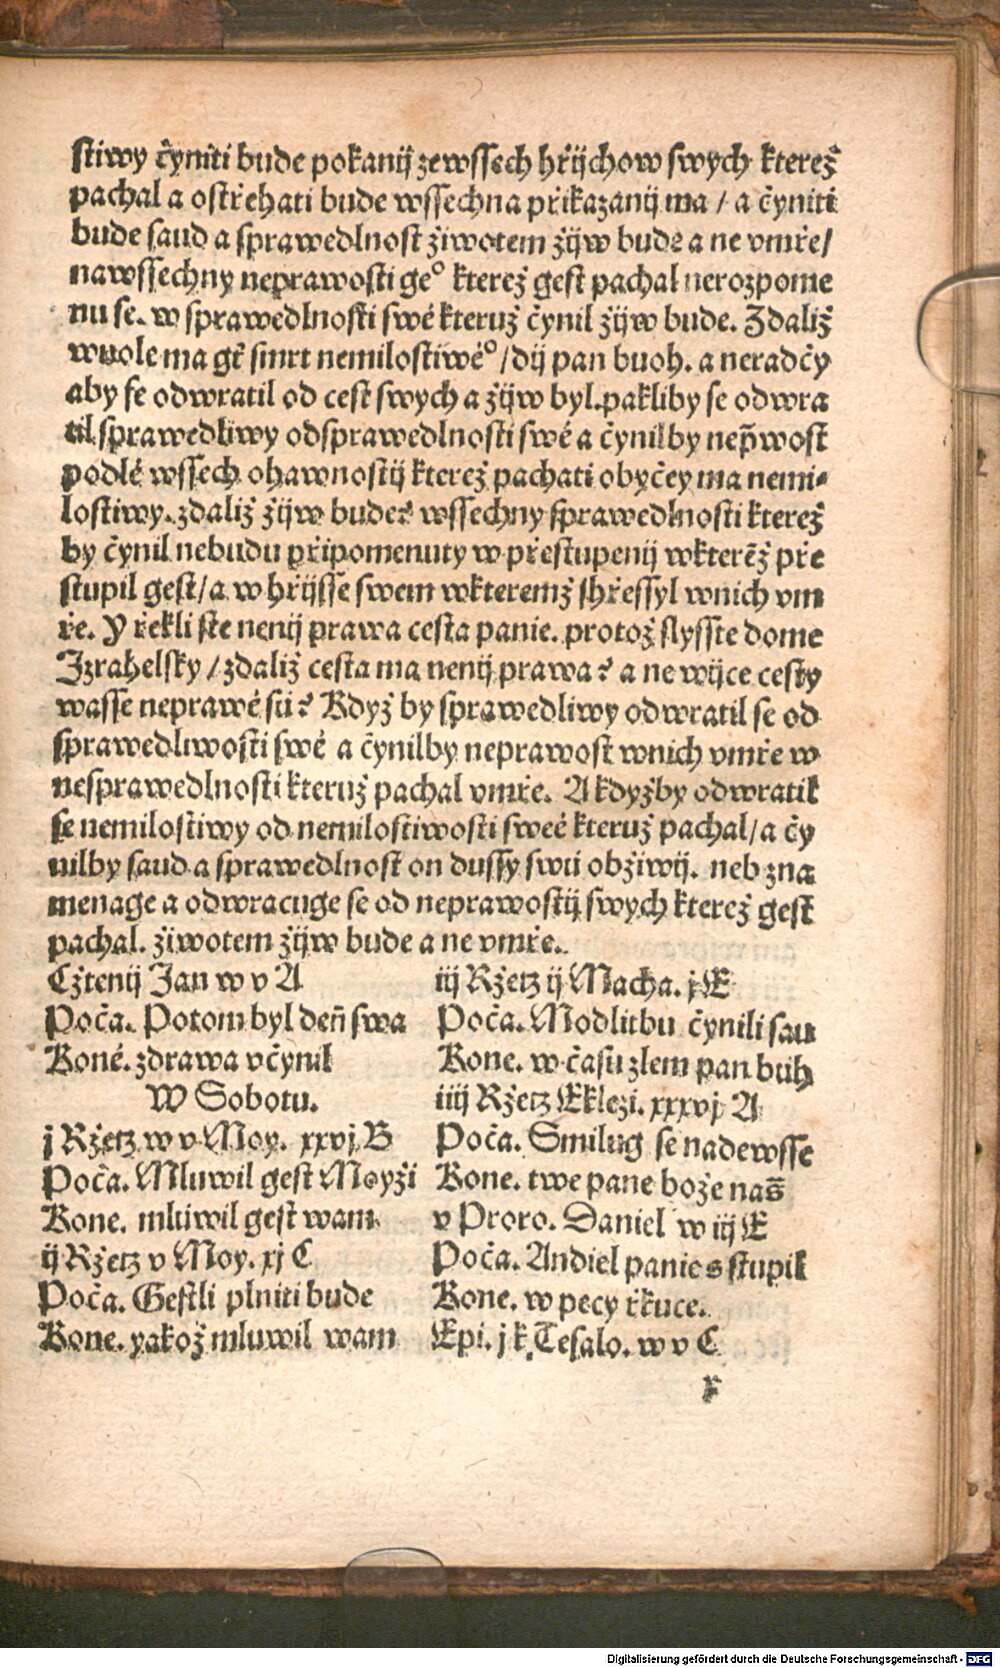 stiwy čyniti bude pokanij zewssech hřijchow swych kterež
pachal a ostřehati bude wssechna přikazanij ma / a čyniti
bude saud a sprawedlnost žiwotem žijw bude a ne vmře /
nawssechny neprawosti ge° kterež gest pachal nerozpome
nu se. w sprawedlnosti swé kteruž čynil žijw bude. Zdaliž
wuole ma gť smrt nemilostiwé° / dij pan buoh. a neradčy
aby se odwratil od cest swych a žijw byl. pakliby se odwra
til sprawedliwy odsprawedlnosti swé a čynilby nep̃wost
podlé wssech ohawnostij kterež pachati obyčey ma nemi-
lostiwy. zdaliž žijw bude? wssechny sprawedlnosti kterež
by čynil nebudu připomenuty w přestupenij wkterẽž pře
stupil gest / a w hřijsse swem wkteremž shřessyl wnich vm
ře. Y řekli ste nenij prawa cesta panie. protož slysste dome
Izrahelsky / zdaliž cesta ma nenij prawa? a ne wijce cesty
wasse neprawé sú? Když by sprawedliwy odwratil se od
sprawedliwosti swé a čynilby neprawost wnich vmře w
nesprawedlnosti kteruž pachal vmře. A kdyžby odwratil
se nemilostiwy od nemilostiwosti sweé kteruž pachal / a čy
nilby saud a sprawedlnost on dussy swú obžiwij. neb zna
menage a odwracuge se od neprawostij swych kterež gest
pachal. žiwotem žijw bude a ne vmře.
Cžtenij Jan w v A
Poča. Potom byl deñ swa
Koné. zdrawa včynil
W Sobotu.
j Ržetz w v Moy. xxvj B
Poča. Mluwil gest Moyži
Kone. mluwil gest wam
ij Ržetz v Moy. xj C
Poča. Gestli plniti bude
Kone. yakož mluwil wam
iij Ržetz ij Macha. j E
Poča. Modlitbu čynili sau
Kone. w času zlem pan buh
iiij Ržetz Eklezi. xxxvj A
Poča. Smilug se nadewsse
Kone. twe pane bože nas̃
v Proro. Daniel w iij E
Poča. Andiel panie s stupil
Kone. w pecy řkuce.
Epi. j k Tesalo. w v C
r
Digitalisierung gefördert durch die Deutsche Forschungsgemeinschaft - DFG